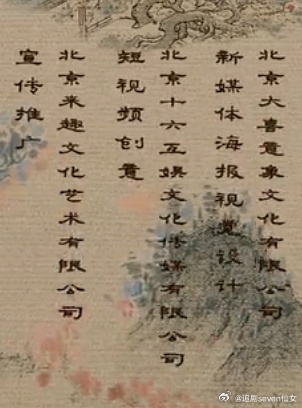 北京大喜意象文化有限公司
新媒体海报视觉设计
北京十六互娱文化传媒有限公司
短视频创意
北京来趣文化艺术有限公司
宣传推广
@追剧seven仙女